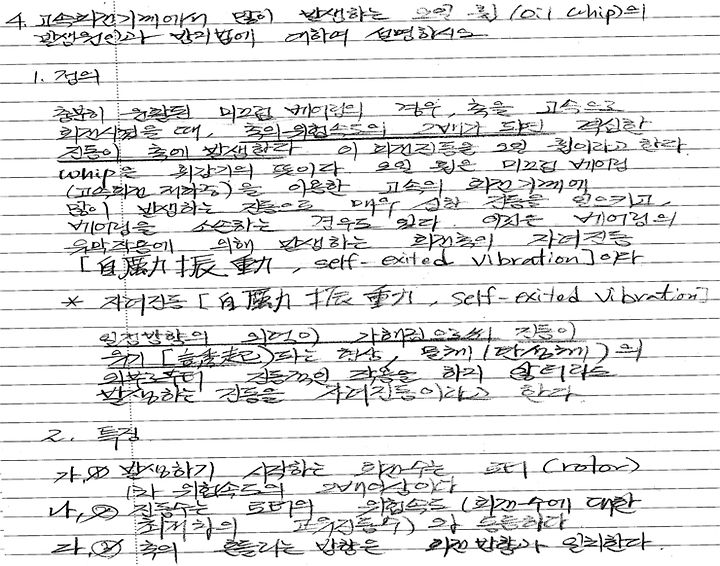 4. 고속회전기계에서 많이 발생하는 오일 휩(Oil Whip)의
발생원인과 방지법에 대하여 설명하시오
1. 정의
충분히 윤활된 미끄럼 베어링의 경우, 축을 고속으로
회전시켰을 때, 축의 위험속도의 2배가 되면 격심한
진동이 축에 발생한다 이 회전진동을 오일 휩이라고 한다
Whip은 회갈기의 뜻이다 오일 휩은 미끄럼 베어링
(고속회전 저하중)을 이용한 고속의 회전기계에
많이 발생하는 진동으로 매우 심한 진동을 일으키고,
베어링을 소손하는 경우도 있다. 이것은 베어링의
유막작용에 의해 발생하는 회전축의 자려진동
[自勵力 振動, self-exited vibration]이다
* 자려진동 [自勵力 振動, self-exited vibration]
일정방향의 외력이 가해짐으로써 진동이
야기 되는 현상, 물체(탄성체)의
외부로부터 진동적인 작용을 하지 않더라도
발생하는 진동을 자려진동이라고 한다
2. 특징
가, ① 발생하기 시작하는 회전수는 로터(rotor)
1차 위험속도의 2배이상이다
나, ② 진동수는 로터의 위험속도(회전수에 대한
고유진동수)와 동등하다
라, ③ 축의 흔들리는 방향은 회전방향과 일치한다.